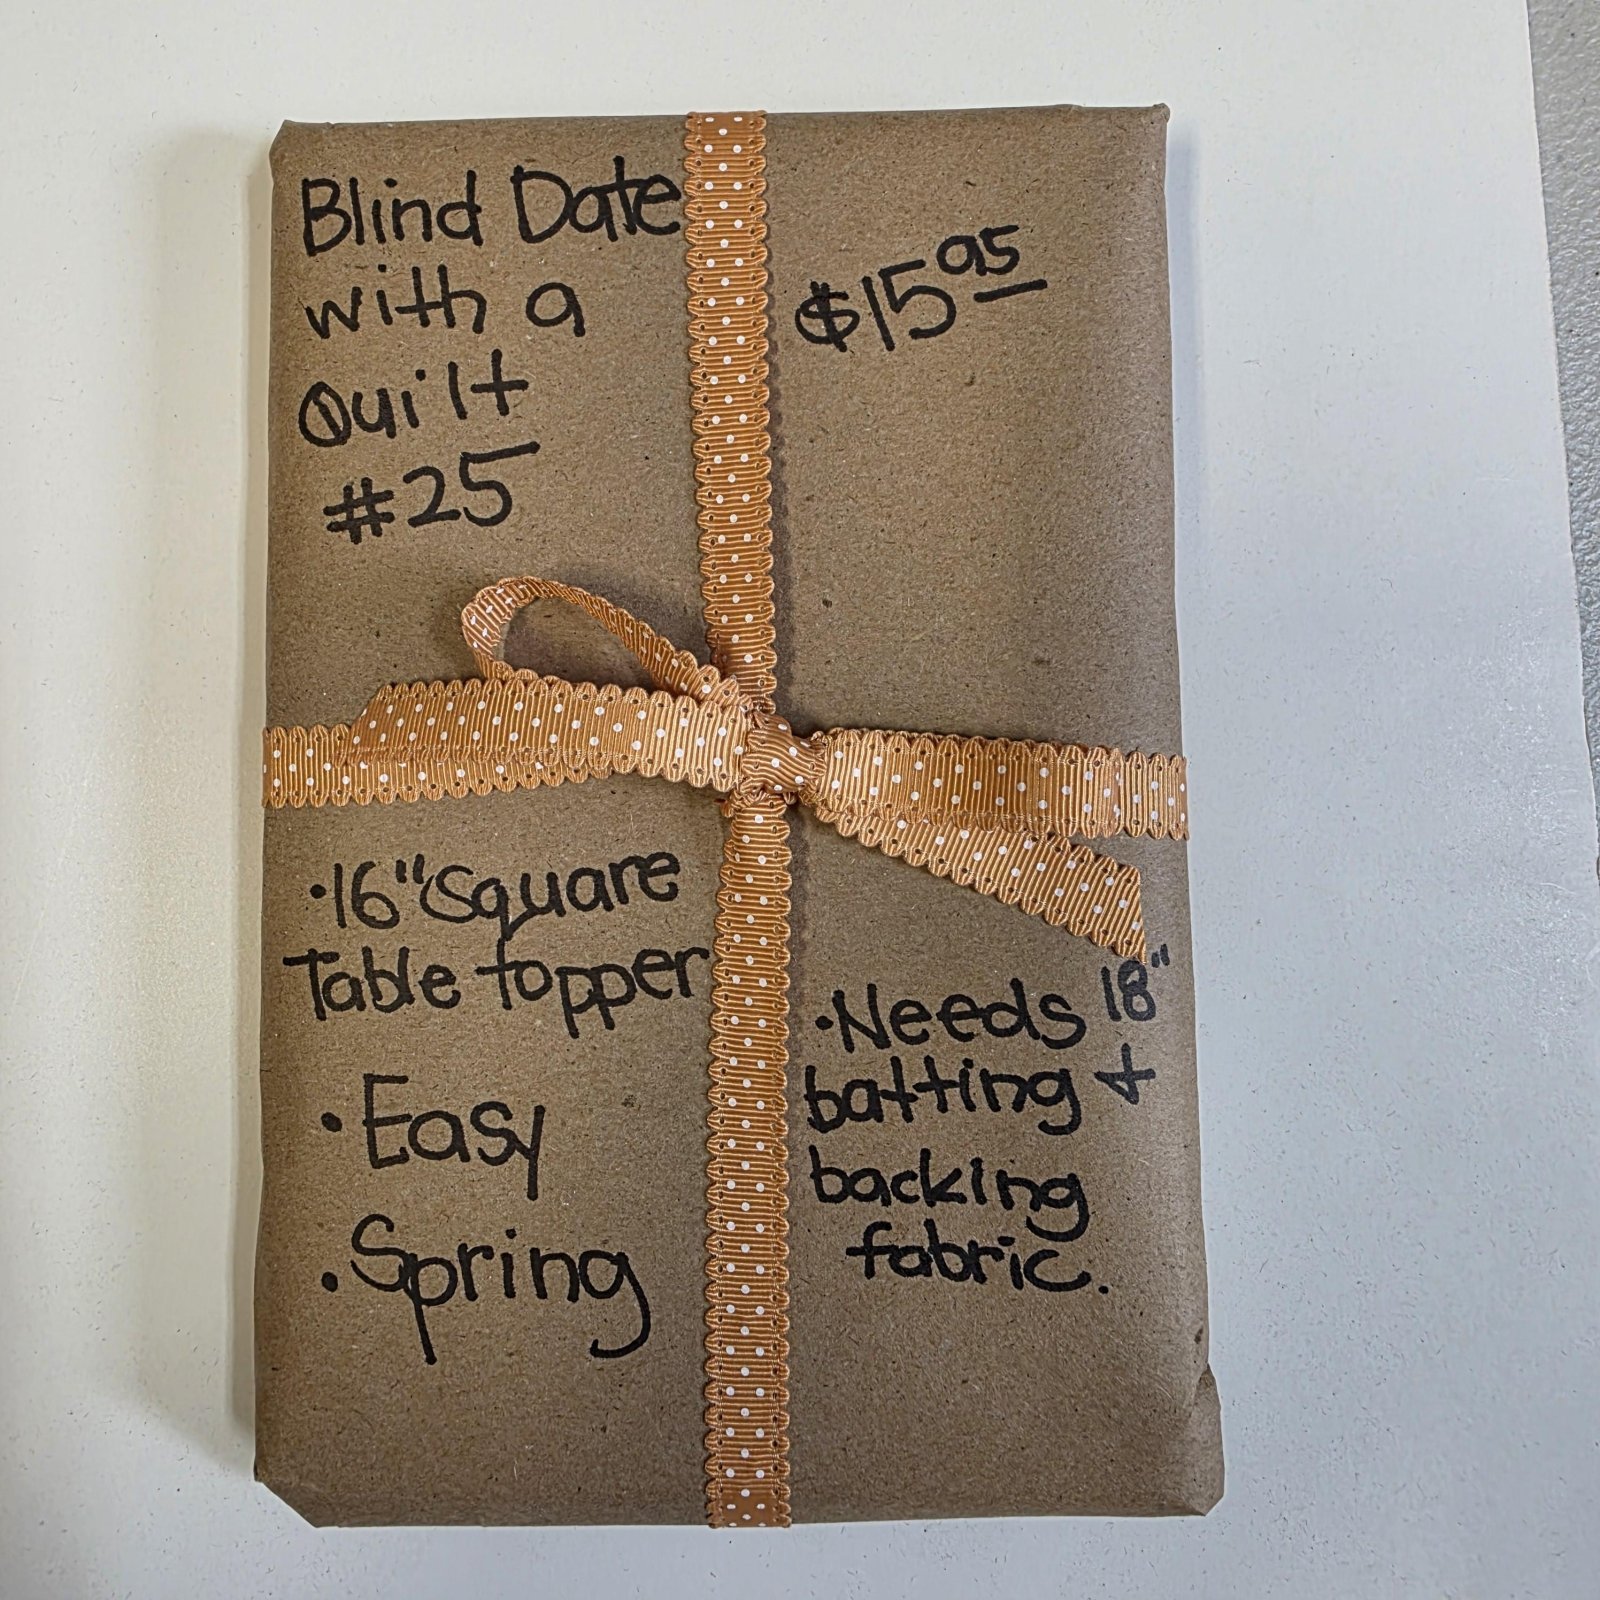 Blind Date
with a
Quilt
#25
$15.95
·16" Square
Table topper
·Easy
·Spring
·Needs 18"
batting +
backing
fabric.